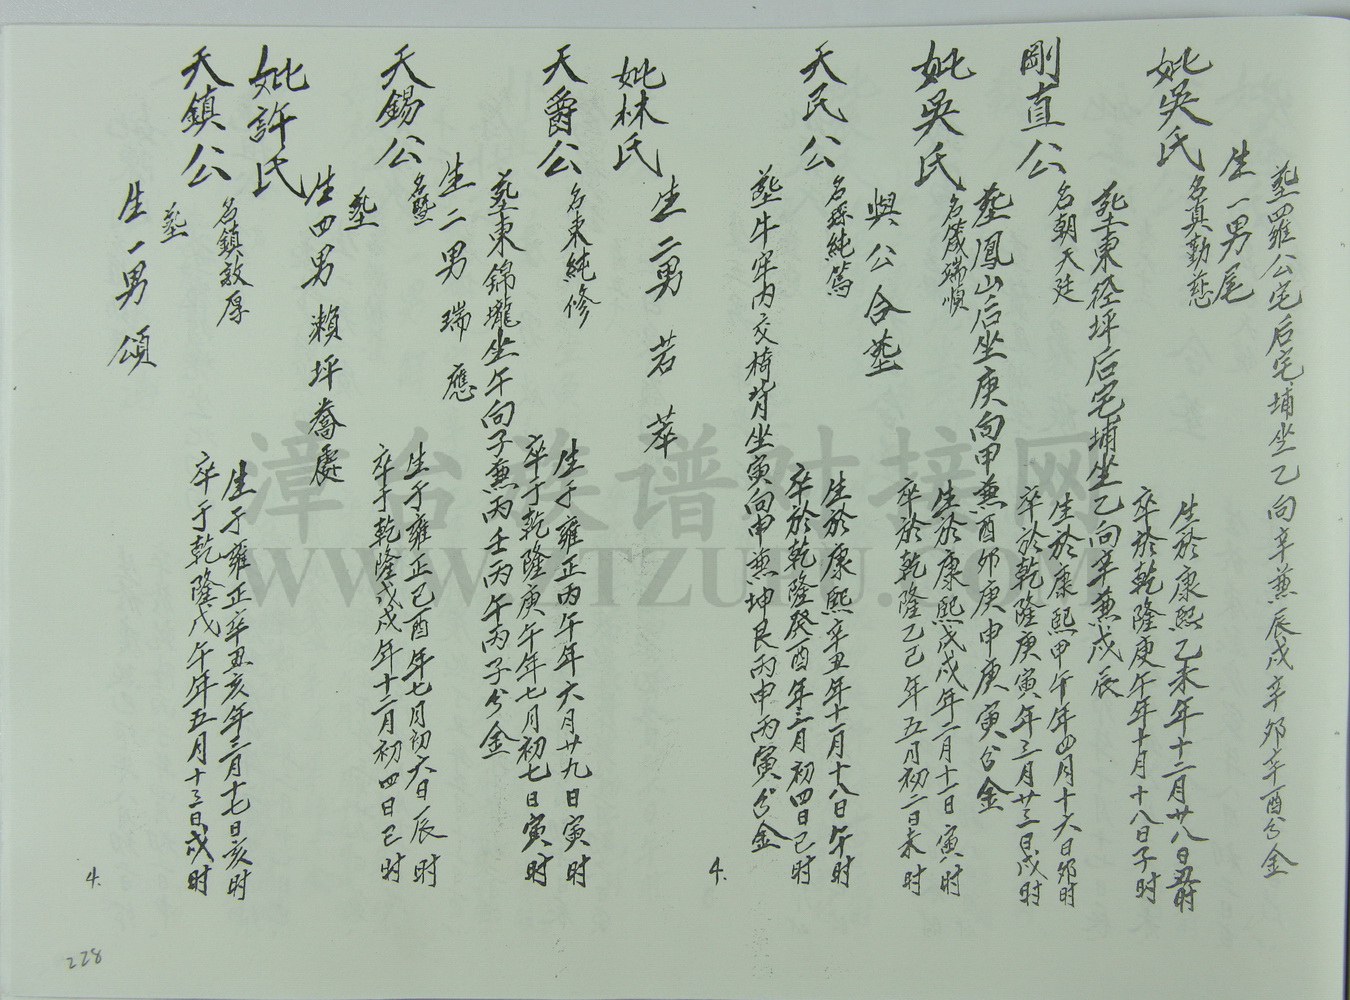 葬羅公宅后宅埔坐乙向辛兼辰戌辛卯辛酉分金
生一男尾
妣吳氏
名真勤慈
生於康熙乙未年十二月廿八日丑时
卒於乾隆庚午年十月十八日子时
葬東徑坪后宅埔坐乙向辛兼戌辰
剛直公
名朝天廷
生於康熙甲午年四月十六日卯时
卒於乾隆庚寅年三月廿三日戌时
葬鳳山后坐庚向甲兼酉卯庚申庚寅分金
妣吳氏
名葴瑞順
生於康熙戊戌年二月十一日寅时
卒於乾隆乙巳年五月初二日未时
與公合葬
天民公
名孫純篤
生於康熙辛丑年十一月十八日午时
卒於乾隆癸酉年三月初四日已时
葬牛牢內交椅背坐寅向申兼坤艮丙申丙寅分金
4.
妣林氏
生二男 若 萃
天爵公
名東純修
生于雍正丙午年六月廿九日寅时
卒于乾隆庚午年七月初七日寅时
葬東錦壠坐午向子兼丙壬丙午丙子分金
生二男 瑞 應
天錫公
生于雍正己酉年七月初六日辰时
卒于乾隆戊戌年十二月初四日已时
葬
生四男 瀨 坪 喬 處
妣許氏
天鎮公
名鎮敦厚
生于雍正辛丑亥年三月十七日亥时
卒于乾隆戊午年五月十三日戌时
葬
生一男 頌
4.
228
漳台族谱对接网
WWW.ZTZUPU.COM